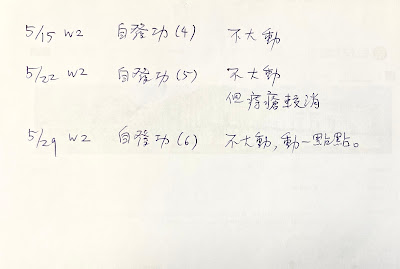 5/15 W2 自發功(4) 不大動
5/22 W2 自發功(5) 不大動
但痔瘡較消
5/29 W2 自發功(6) 不大動,動一點點。